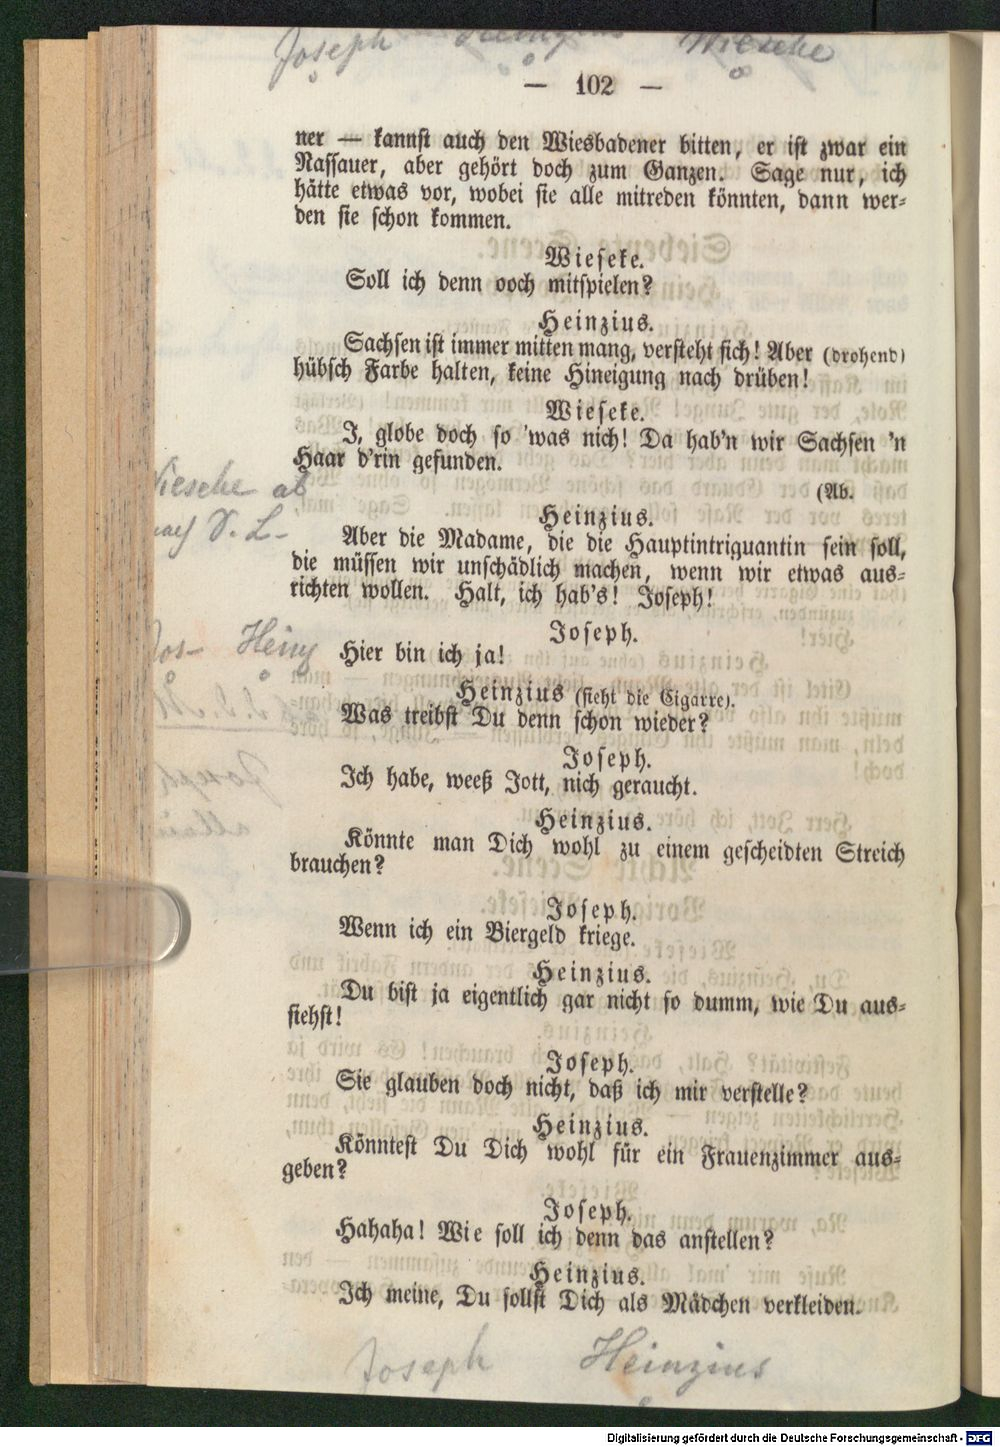 Joseph Heinzius Wieseke
— 102 —
ner — kannst auch den Wiesbadener bitten, er ist zwar ein
Nassauer, aber gehört doch zum Ganzen. Sage nur, ich
hätte etwas vor, wobei sie alle mitreden könnten, dann wer-
den sie schon kommen.
Wieseke.
Soll ich denn ooch mitspielen?
Heinzius.
Sachsen ist immer mitten mang, versteht sich! Aber (drohend)
hübsch Farbe halten, keine Hineigung nach drüben!
Wieseke.
I, globe doch so 'was nich! Da hab'n wir Sachsen 'n
Haar d'rin gefunden.
(Ab.
Wieseke ab
nach S. L.
Heinzius.
Aber die Madame, die die Hauptintriguantin sein soll,
die müssen wir unschädlich machen, wenn wir etwas aus-
richten wollen. Halt, ich hab's! Joseph!
Jos- Heinz
Joseph.
Hier bin ich ja!
Heinzius (sieht die Cigarre).
Was treibst Du denn schon wieder?
Joseph.
Ich habe, weeß Jott, nich geraucht.
Heinzius.
Könnte man Dich wohl zu einem gescheidten Streich
brauchen?
Joseph.
Wenn ich ein Biergeld kriege.
Heinzius.
Du bist ja eigentlich gar nicht so dumm, wie Du aus-
siehst!
Joseph.
Sie glauben doch nicht, daß ich mir verstelle?
Heinzius.
Könntest Du Dich wohl für ein Frauenzimmer aus-
geben?
Joseph.
Hahaha! Wie soll ich denn das anstellen?
Heinzius.
Ich meine, Du sollst Dich als Mädchen verkleiden.
Joseph Heinzius
Digitalisierung gefördert durch die Deutsche Forschungsgemeinschaft - DFG